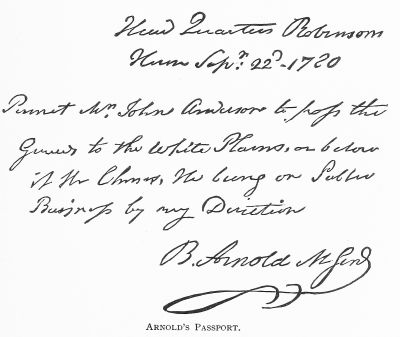 Head Quarters Robinsons
House Sepr. 22d. 1780
Permit Mr. John Anderson to pass the
Guards to the White Plains, or below
if He Chuses, He being on Public
Business by my Direction
B. Arnold M Genl
ARNOLD'S PASSPORT.